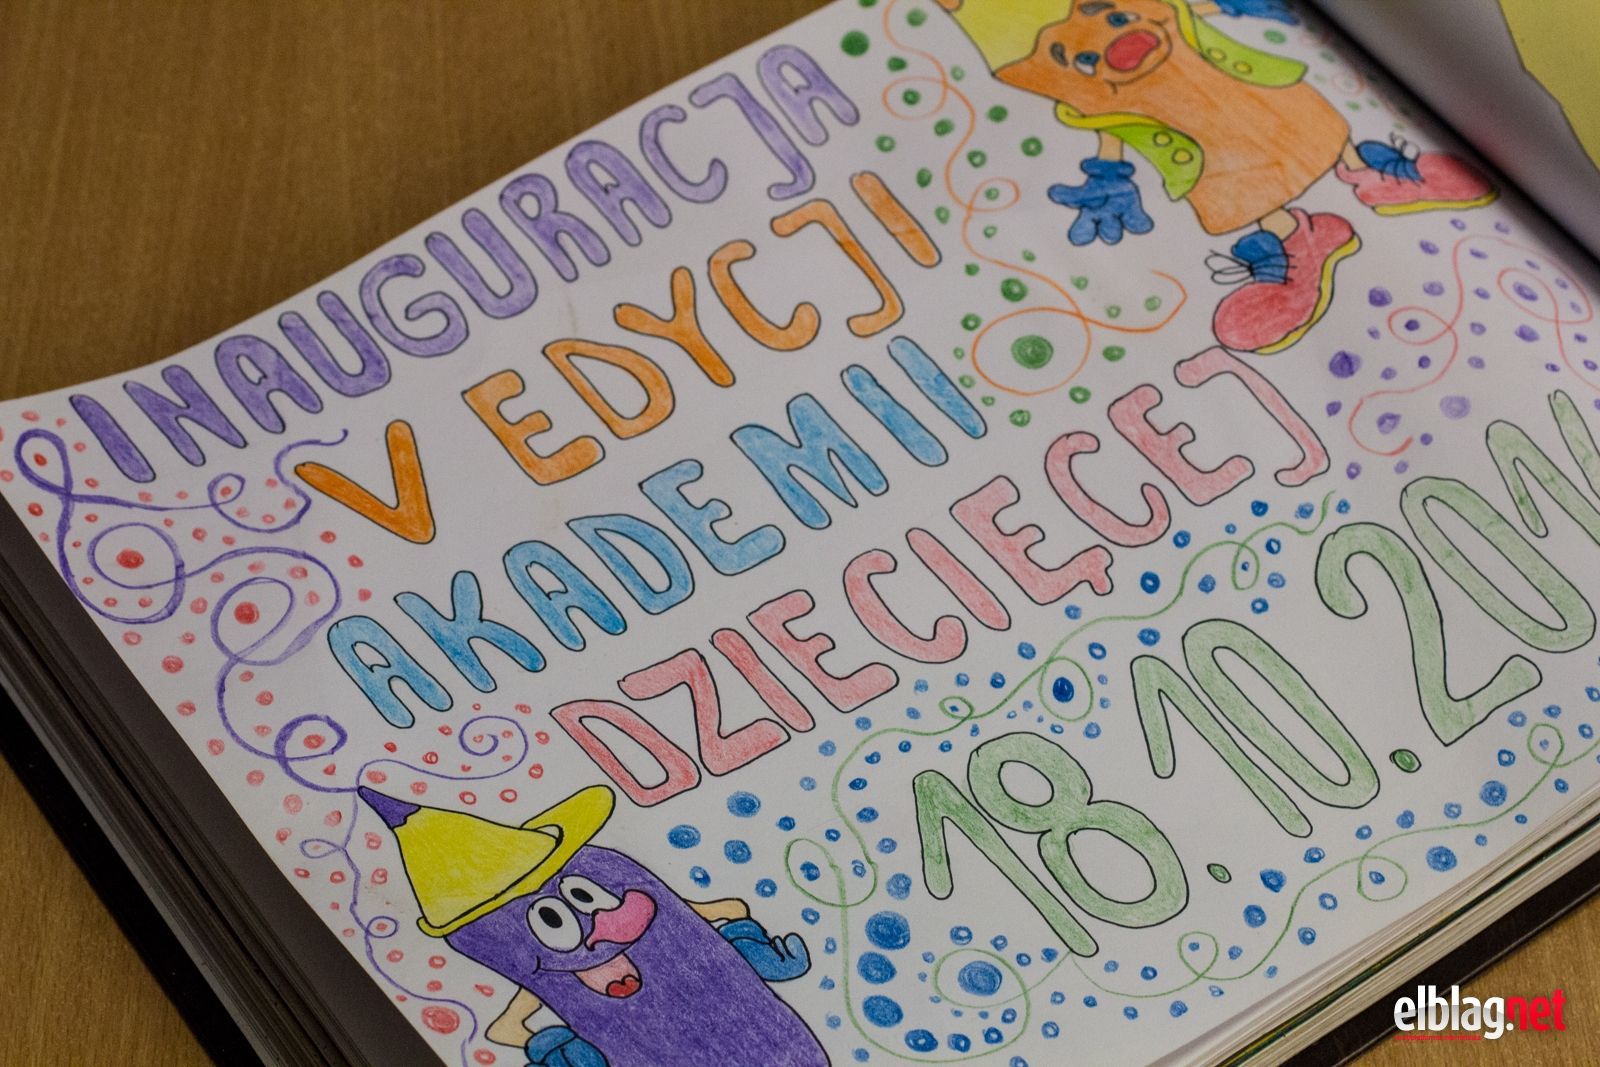 INAUGURACJA
V EDYCJI
AKADEMII
DZIECIĘCEJ
18.10.201
elblag.net